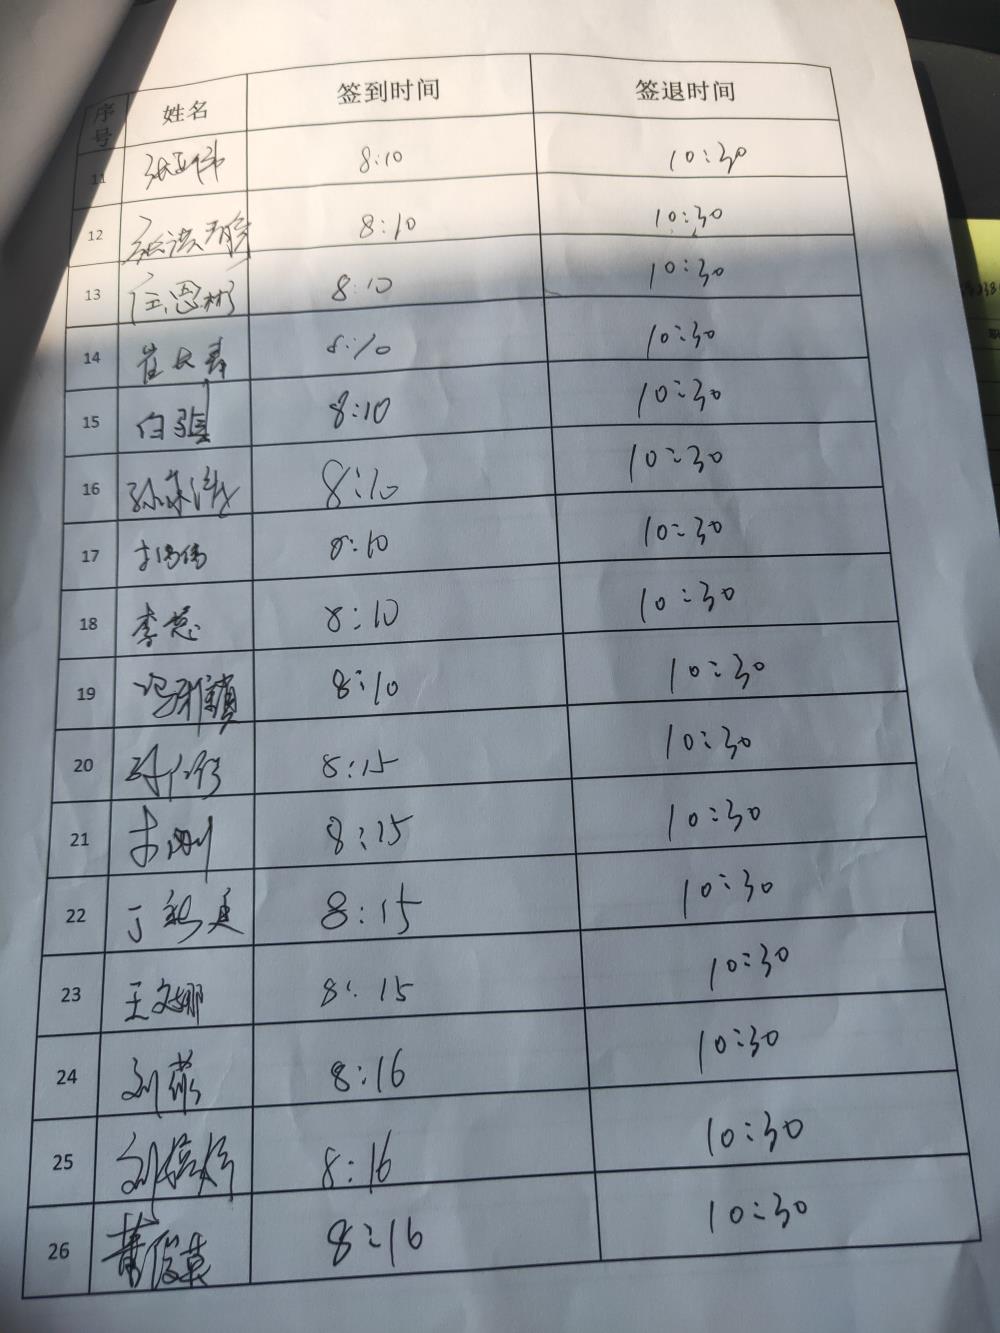 序号 姓名 签到时间 签退时间
11 张亚伟 8:10 10:30
12 8:10 10:30
13 王恩彬 8:10 10:30
14 崔长寿 8:10 10:30
15 白强 8:10 10:30
16 8:10 10:30
17 8:10 10:30
18 李慧 8:10 10:30
19 冯雅镇 8:10 10:30
20 8:15 10:30
21 8:15 10:30
22 8:15 10:30
23 王文娜 8:15 10:30
24 刘 8:16 10:30
25 刘婷婷 8:16 10:30
26 董俊英 8:16 10:30